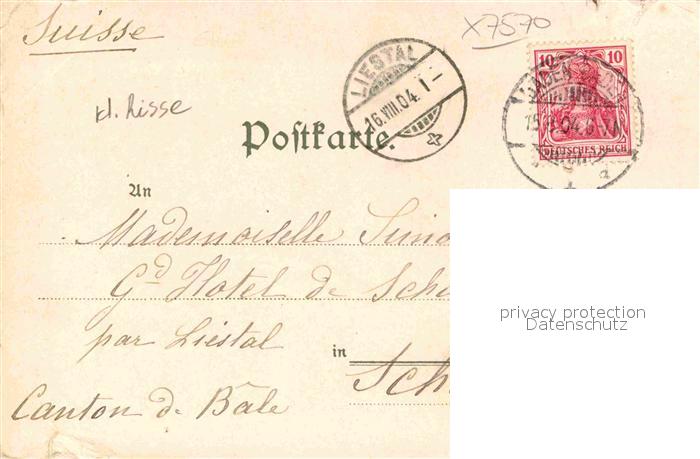 Suisse
X7570
kl. Risse
LIESTAL
16.VIII.04.1-
10 10
DEUTSCHES REICH
BADEN
Postkarte.
An
Mademoiselle
Gd Hotel de Sch
par Liestal
in
Sch
Canton de Bâle
privacy protection
Datenschutz